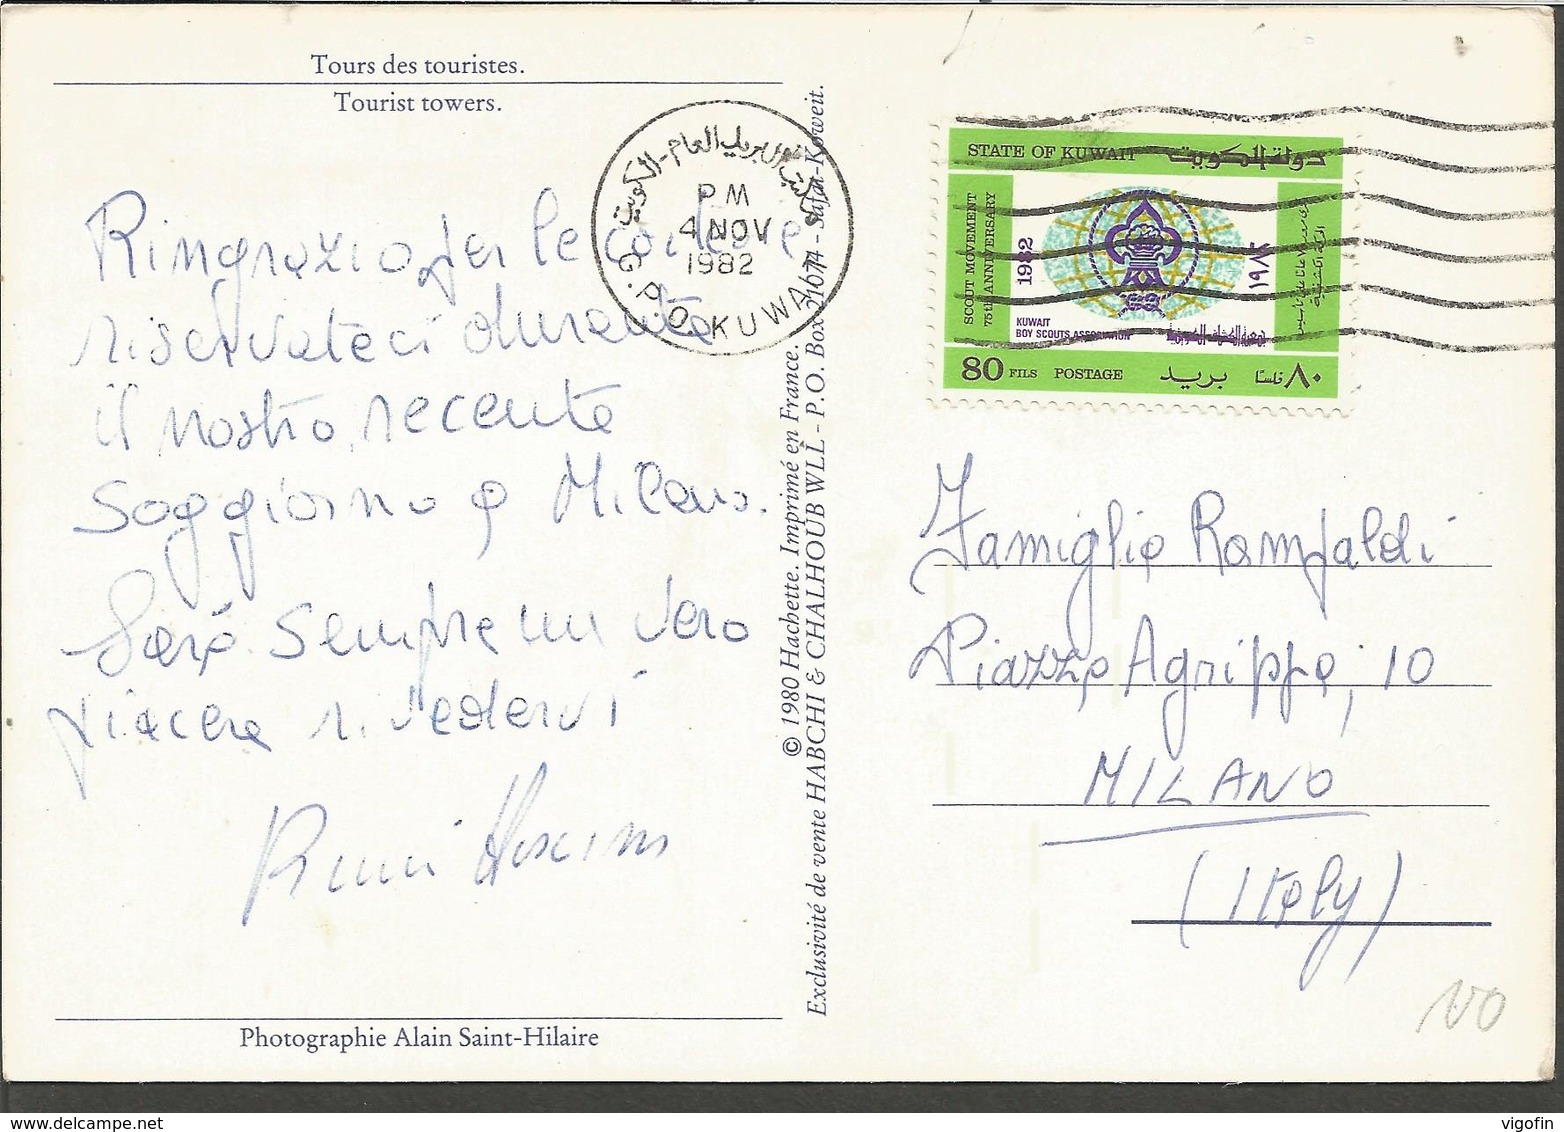 Tours des touristes.
Tourist towers.
Ringrazio per le cortesie
riservateci durante
il nostro recente
soggiorno a Milano.
Sarà sempre un vero
piacere rivedervi
Photographie Alain Saint-Hilaire
© 1980 Hachette. Imprimé en France.
Exclusivité de vente HABCHI & CHALHOUB WLL - P.O. Box 21074 - Safat-Koweit.
PM
4 NOV
1982
G.P.O. KUWAIT
STATE OF KUWAIT دولة الكويت
SCOUT MOVEMENT
75th ANNIVERSARY
1982
١٩٨٢
KUWAIT
BOY SCOUTS ASSOCIATION
80 FILS POSTAGE بريد ٨٠ فلسًا
Famiglia Rampaldi
Piazza Agrippa, 10
MILANO
(Italy)
100
vigofin